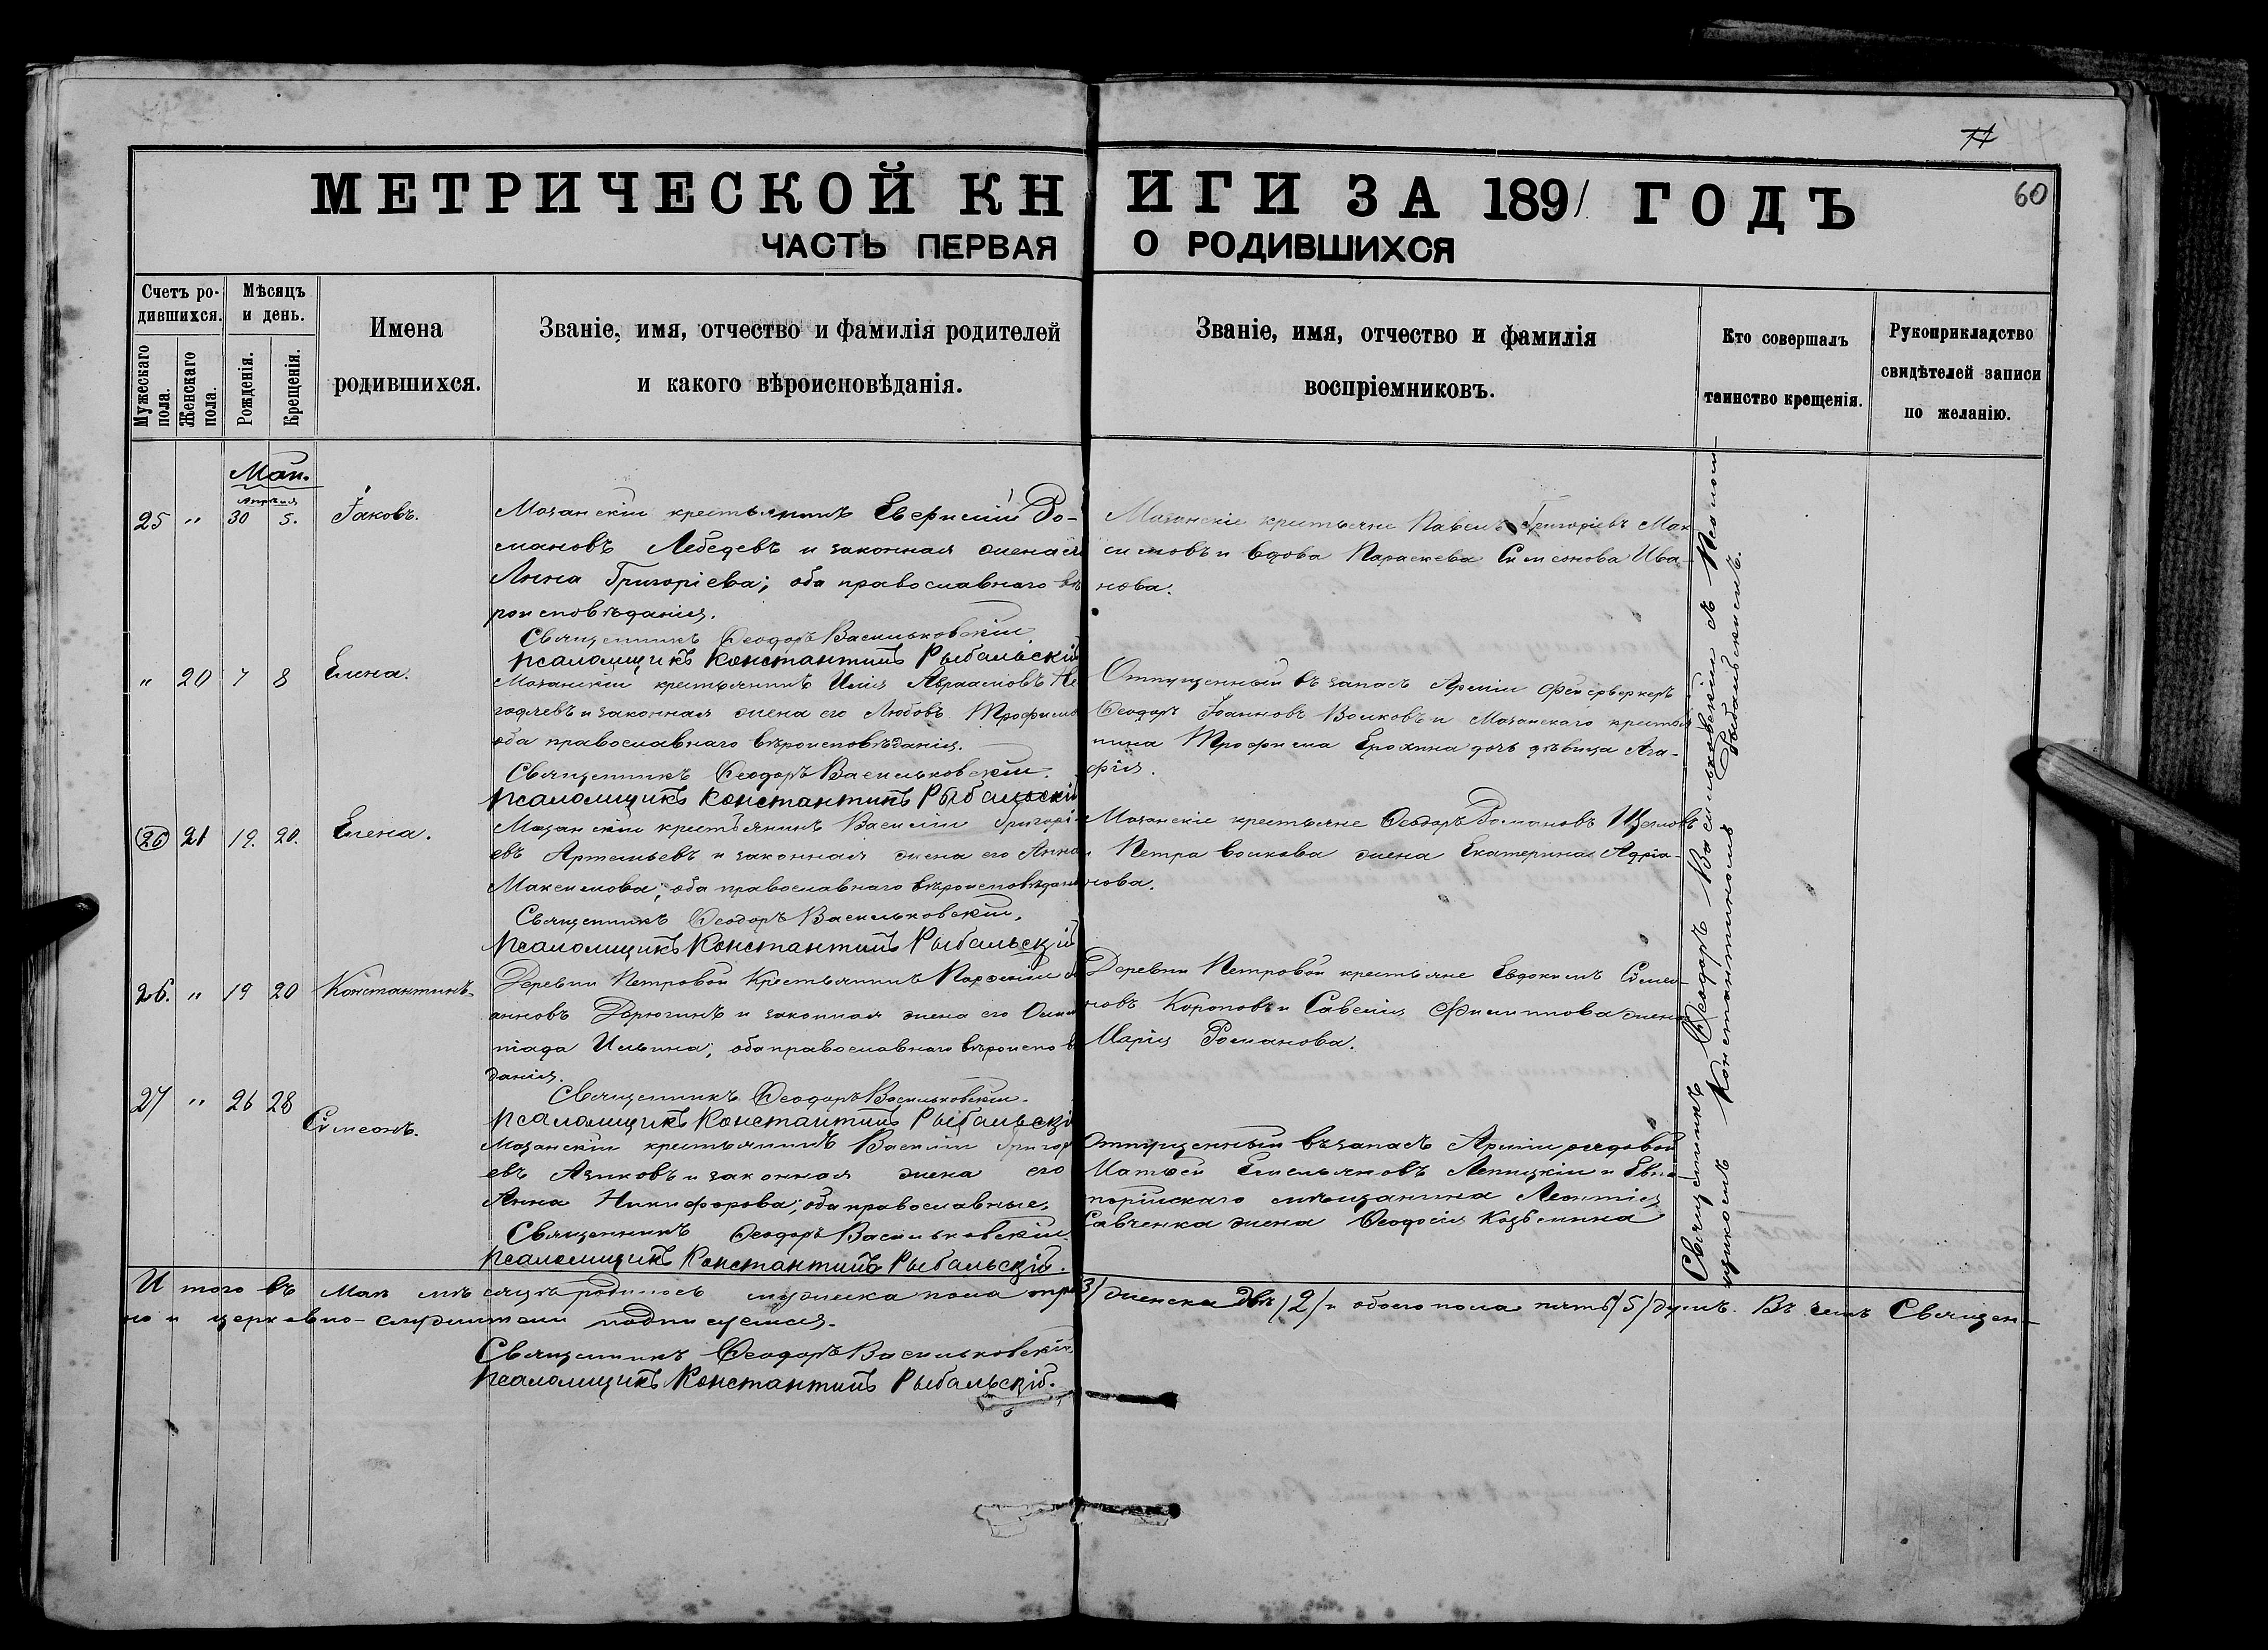 77
60
МЕТРИЧЕСКОЙ КНИГИ ЗА 1891 ГОДЪ
ЧАСТЬ ПЕРВАЯ О РОДИВШИХСЯ
Счетъ ро-
дившихся.
Мужескаго
пола.
Женскаго
пола.
Мѣсяцъ
и день.
Рожденія.
Крещенія.
Имена
родившихся.
Званіе, имя, отчество и фамилія родителей
и какого вѣроисповѣданія.
Званіе, имя, отчество и фамилія
воспріемниковъ.
Кто совершалъ
таинство крещенія.
Рукоприкладство
свидѣтелей записи
по желанію.
Май.
Апрѣля
25 " 30 5. Іаковъ.
Мазанскій крестьянинъ Евфимій Ро-
мановъ Лебедевъ и законная жена его
Анна Григоріева; оба православнаго вѣ
роисповѣданія.
Священникъ Ѳеодоръ Васильковскій.
Псаломщикъ Константинъ Рыбальскій
Мазанскіе крестьяне Павелъ Григоріевъ Мак
симовъ и вдова Параскева Симеонова Ива-
нова.
" 20 7 8 Елена.
Мазанскій крестьянинъ Илія Авраамовъ Не
годяевъ и законная жена его Любовь Трофимо
оба православнаго вѣроисповѣданія.
Священникъ Ѳеодоръ Васильковскій.
Псаломщикъ Константинъ Рыбальскій
Отпущенный въ запасъ Арміи фейерверкеръ
Ѳеодоръ Іоанновъ Волковъ и Мазанскаго крестья
нина Трофима Ерохина дочь дѣвица Ага-
фія.
26 21 19. 20. Елена.
Мазанскій крестьянинъ Василій Григорі-
евъ Артемьевъ и законная жена его Анна
Максимова; оба православнаго вѣроисповѣдані
Священникъ Ѳеодоръ Васильковскій.
Псаломщикъ Константинъ Рыбальскій
Мазанскіе крестьяне Ѳеодоръ Романовъ
и Петра Волкова жена Екатерина Адріа-
нова.
26. " 19 20 Константинъ.
Деревни Петровой Крестьянинъ
анновъ Дерюгинъ и законная жена его Олим
піада Ильина; оба православнаго вѣроисповѣ
данія.
Священникъ Ѳеодоръ Васильковскій.
Псаломщикъ Константинъ Рыбальскій
Деревни Петровой крестьяне Евдокимъ Симео-
новъ Короповъ и Савелія Филиппова жена
Марія Романова.
27 " 26 28 Симеонъ.
Мазанскій крестьянинъ Василій Григорі
евъ Азиковъ и законная жена его
Анна Никифорова; оба православные.
Священникъ Ѳеодоръ Васильковскій.
Псаломщикъ Константинъ Рыбальскій.
Отпущенный въ запасъ Арміи рядовой
Матѳей Емельяновъ Лепицкій и Евпа
торійскаго мѣщанина Леонтія
Савченка жена Ѳеодосія Козьмина
Священникъ Ѳеодоръ Васильковскій съ Псалом-
щикомъ Константиномъ Рыбальскимъ.
Итого въ Маѣ мѣсяцѣ родилось мужеска пола три /3/ женска двѣ /2/ и обоего пола пять /5/ душъ. Въ чемъ Священ-
но и церковно-служители подписуемся.
Священникъ Ѳеодоръ Васильковскій.
Псаломщикъ Константинъ Рыбальскій.